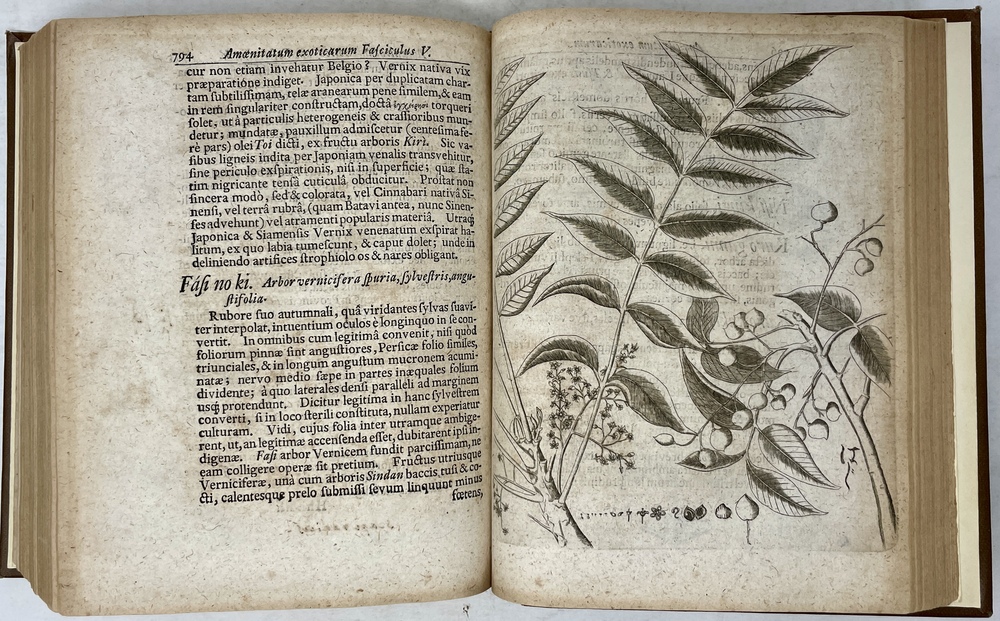 794 Amœnitatum exoticarum Fasciculus V.
cur non etiam invehatur Belgio? Vernix nativa vix
præparatione indiget. Japonica per duplicatam char-
tam subtilissimam, telæ aranearum pene similem, & eam
in rem singulariter constructam, doctâ torqueri
solet, ut à particulis heterogeneis & crassioribus mun-
detur; mundatæ, pauxillum admiscetur (centesima fe-
rè pars) olei Toi dicti, ex fructu arboris Kiri. Sic va-
sibus ligneis indita per Japoniam venalis transvehitur,
sine periculo exspirationis, nisi in superficie; quæ sta-
tim nigricante tensâ cuticulâ obducitur. Prostat non
sincera modò, sed & colorata, vel Cinnabari nativâ Si-
nensi, vel terrâ rubrâ, (quam Batavi antea, nunc Sinen-
ses advehunt) vel atramenti popularis materiâ. Utraq;
Japonica & Siamensis Vernix venenatum exspirat ha-
litum, ex quo labia tumescunt, & caput dolet; unde in
deliniendo artifices strophiolo os & nares obligant.
Fasi no ki. Arbor vernicifera spuria, sylvestris, angu-
stifolia.
Rubore suo autumnali, quâ viridantes sylvas suavi-
ter interpolat, intuentium oculos è longinquo in se con-
vertit. In omnibus cum legitimâ convenit, nisi quòd
foliorum pinnæ sint angustiores, Persicæ folio similes,
triunciales, & in longum angustum mucronem acumi-
natæ; nervo medio sæpe in partes inæquales folium
dividente; à quo laterales densi paralleli ad marginem
usq; protendunt. Dicitur legitima in hanc sylvestrem
converti, si in loco sterili constituta, nullam experiatur
culturam. Vidi, cujus folia inter utramque ambige-
rent, ut, an legitimæ accensenda esset, dubitarent ipsi in-
digenæ. Fasi arbor Vernicem fundit parcissimam, ne
eam colligere operæ sit pretium. Fructus utriusque
Verniciferæ, unà cum arboris Sindan baccis tusi & co-
cti, calentesque prelo submissi sevum linquunt minus
fœtens,